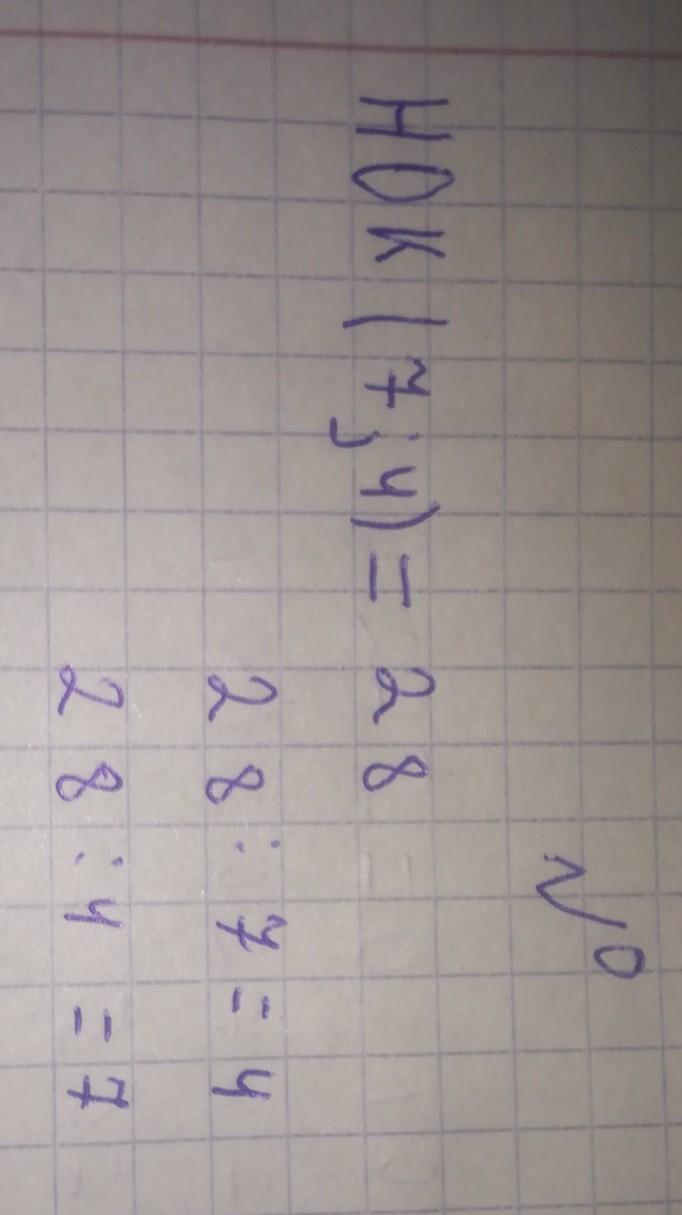 №
НОК(7;4)= 28
28:7=4
28:4=7